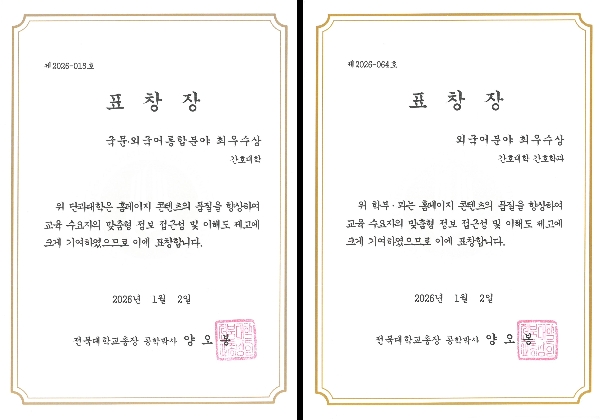 제 2026-018호
표 창 장
국문·외국어통합분야 최우수상
간호대학
위 단과대학은 홈페이지 콘텐츠의 품질을 향상하여
교육 수요자의 맞춤형 정보 접근성 및 이해도 제고에
크게 기여하였으므로 이에 표창합니다.
2026년 1월 2일
전북대학교총장 공학박사 양 오 봉
제 2026-064호
표 창 장
외국어분야 최우수상
간호대학 간호학과
위 학부·과는 홈페이지 콘텐츠의 품질을 향상하여
교육 수요자의 맞춤형 정보 접근성 및 이해도 제고에
크게 기여하였으므로 이에 표창합니다.
2026년 1월 2일
전북대학교총장 공학박사 양 오 봉